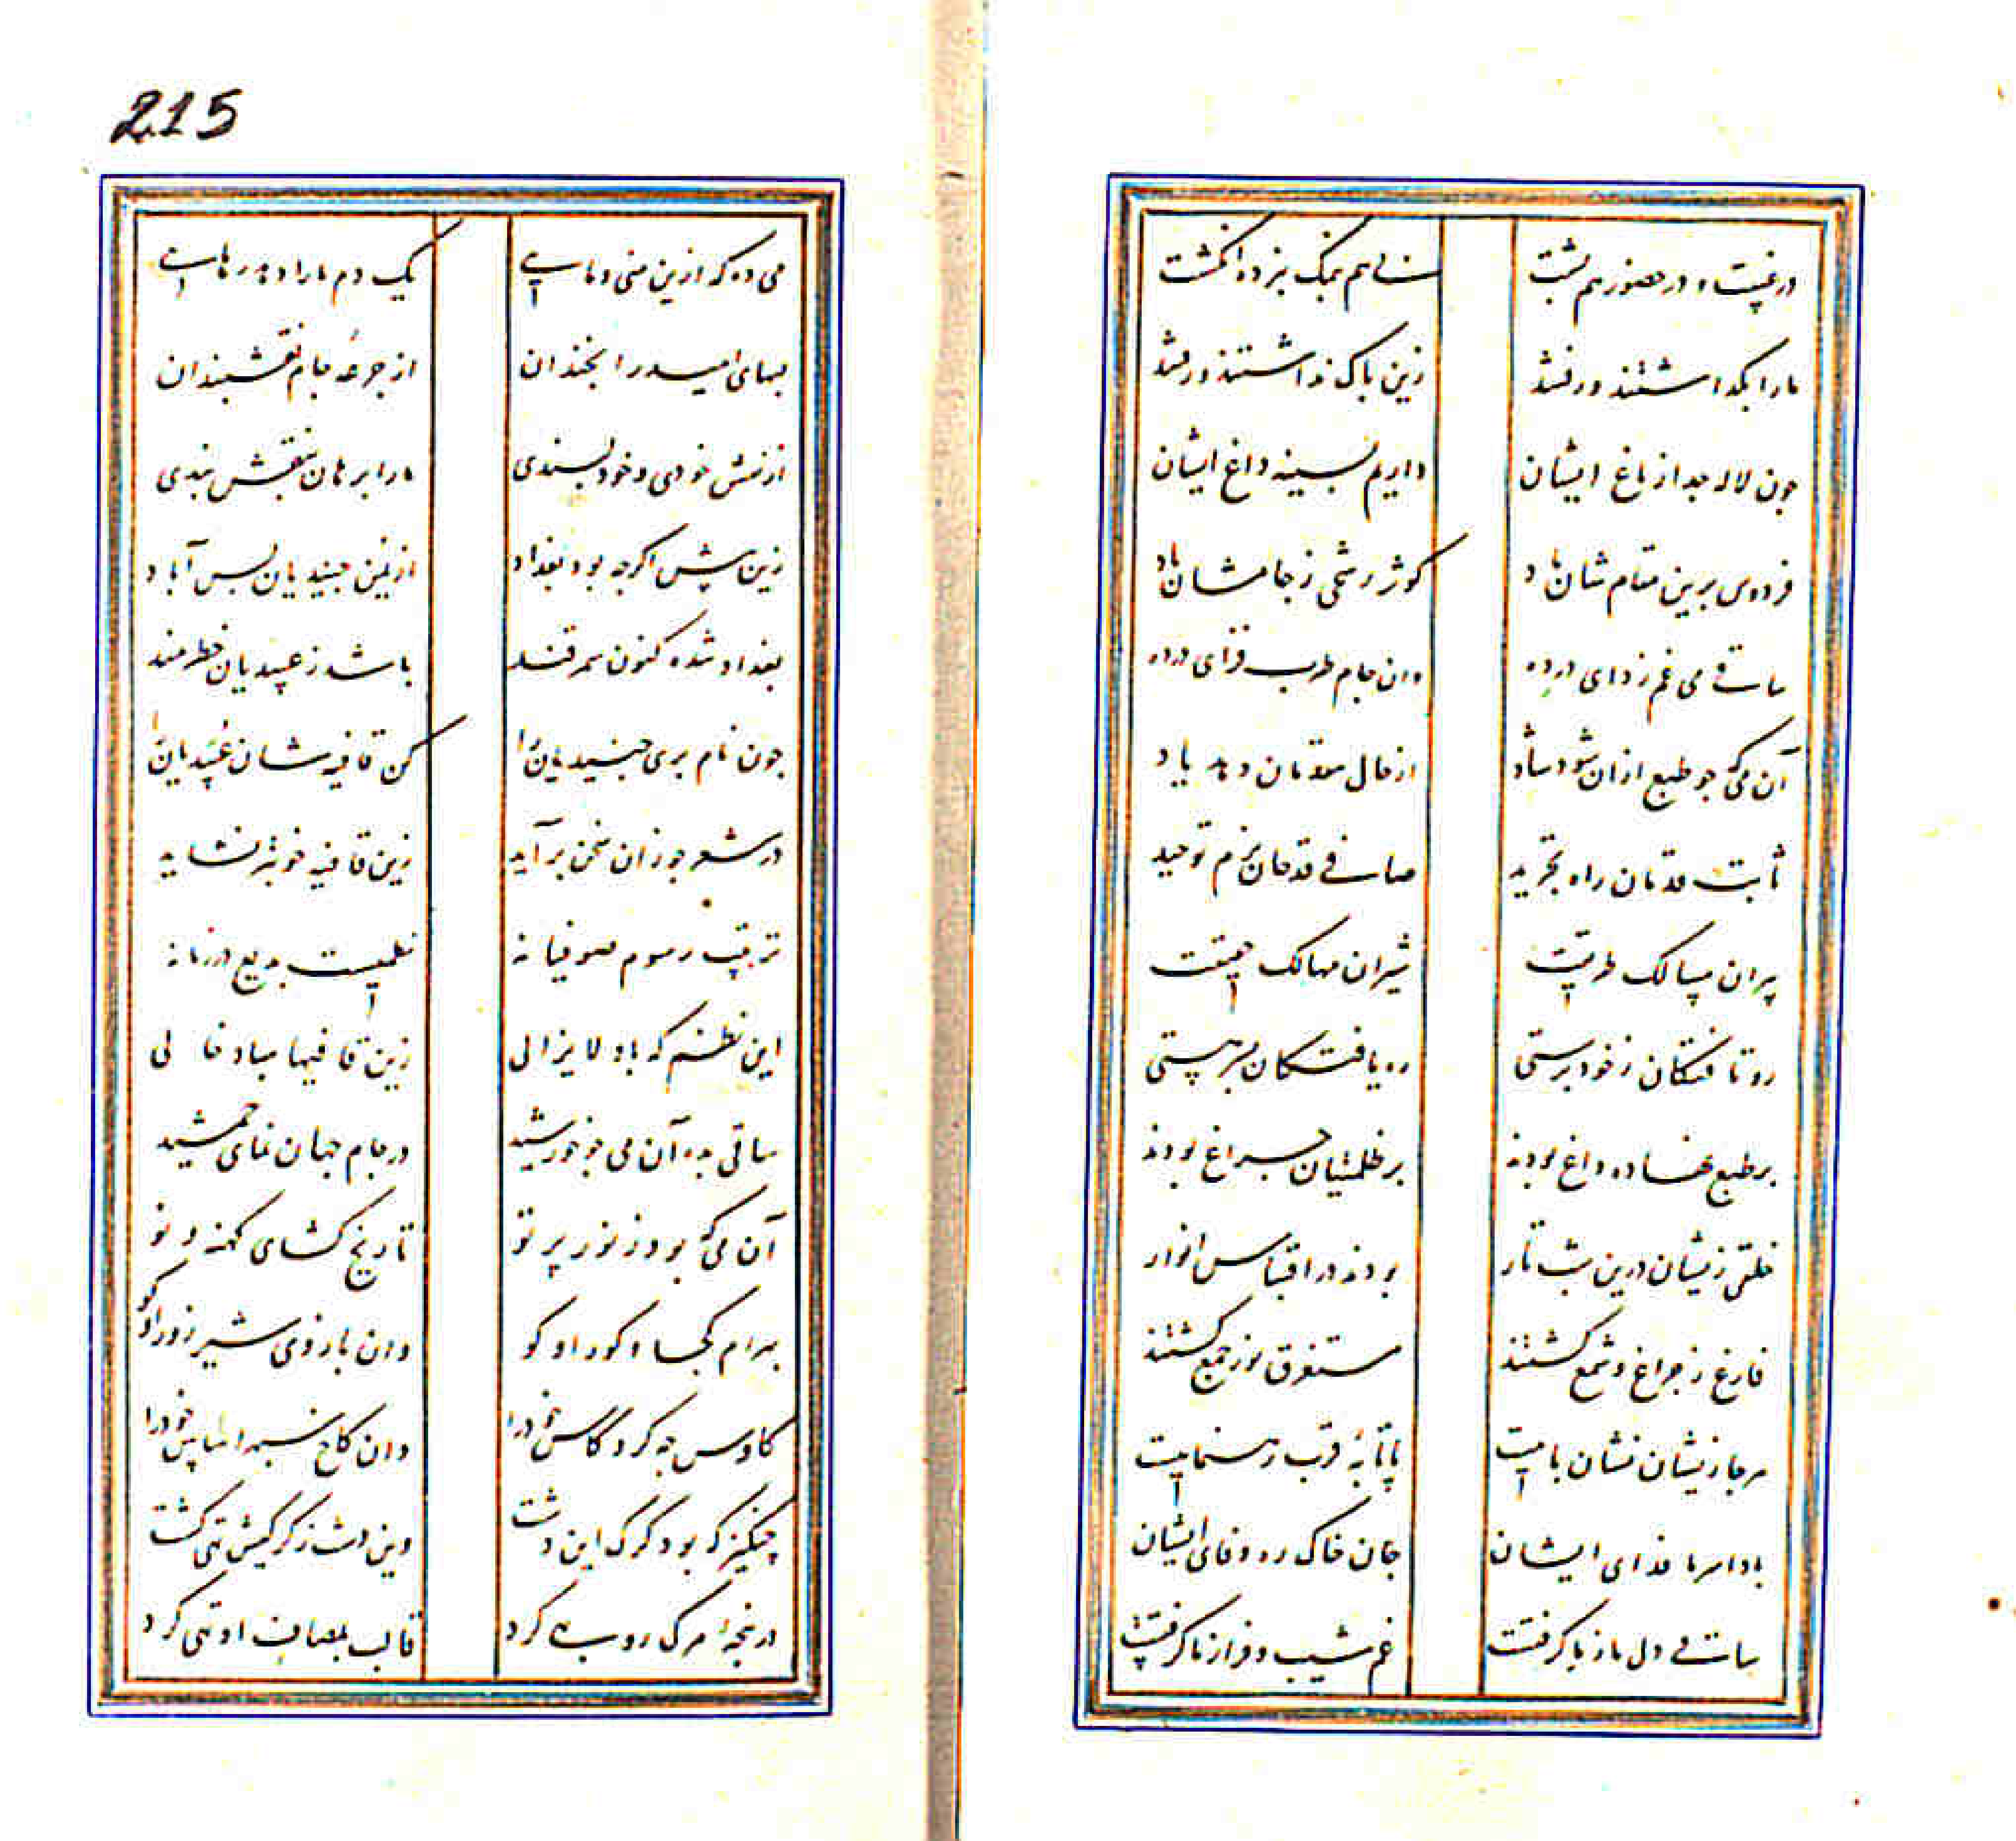 در غیبت و در حضور هم پشت
نی هم بمحک نیزده انگشت
ما را بگذاشتند و رفتند
زین باک نداشتند و رفتند
چون لاله جدا ز باغ ایشان
داریم بسینه داغ ایشان
فردوس برین مقام شان باد
کوثر رشحی ز جامشان باد
ساقی می غم زدای درده
وان جام طرب فزای درده
آن می که چو طبع ازان شود شاد
از حال مقدمان دهد یاد
ثابت قدمان راه تجرید
صافی قدحان بزم توحید
پیران مسالک طریقت
شیران مهالک حقیقت
رو تافتگان ز خودپرستی
ره یافتگان بسر هستی
بر طبع نهاده داغ بودند
بر ظلمتیان چراغ بودند
خلقی زیشان درین شب تار
بودند در اقتباس انوار
فارغ ز چراغ و شمع گشتند
مستغرق نور جمع گشتند
هر جا زیشان نشان پاییست
تا پایهٔ قرب رهنماییست
بادا سر ما فدای ایشان
جان خاک ره وفای ایشان
ساقی دل ما ز ما گرفتست
غم شیب و فراز ما گرفتست
215
می ده که ازین منی و مایی
یک دم ما را دهد رهایی
لبهای امید را بخندان
از جرعهٔ جام نقشبندان
از نقش خودی و خودپسندی
ما را برهان بنقش بندی
زین پیش اگرچه بود بغداد
از یمن جنیدیان بس آباد
بغداد شده کنون سمرقند
باشد ز عبیدیان خطرمند
چون نام بری جنیدیان را
کن قافیه شان عبیدیان را
در شعر چو زان سخن برآید
زین قافیه خوبتر نشاید
ترتیب رسوم صوفیانه
نظمیست بدیع در زمانه
این نظم که باد لایزالی
زین قافیها مباد خالی
ساقی بده آن می چو خورشید
در جام جهان نمای جمشید
آن می که بود ز نور پرتو
تاریخ گشای کهنه و نو
بهرام کجا و گور او کو
وان بازوی شیر زور او کو
کاوس چه کرد کاس خود را
وان کاخ سپهر اساس خود را
چنگیز که بود گرگ این دشت
وین دشت ز گرگیش تهی گشت
در پنجهٔ مرگ روبهی کرد
قالب بمصاف او تهی کرد